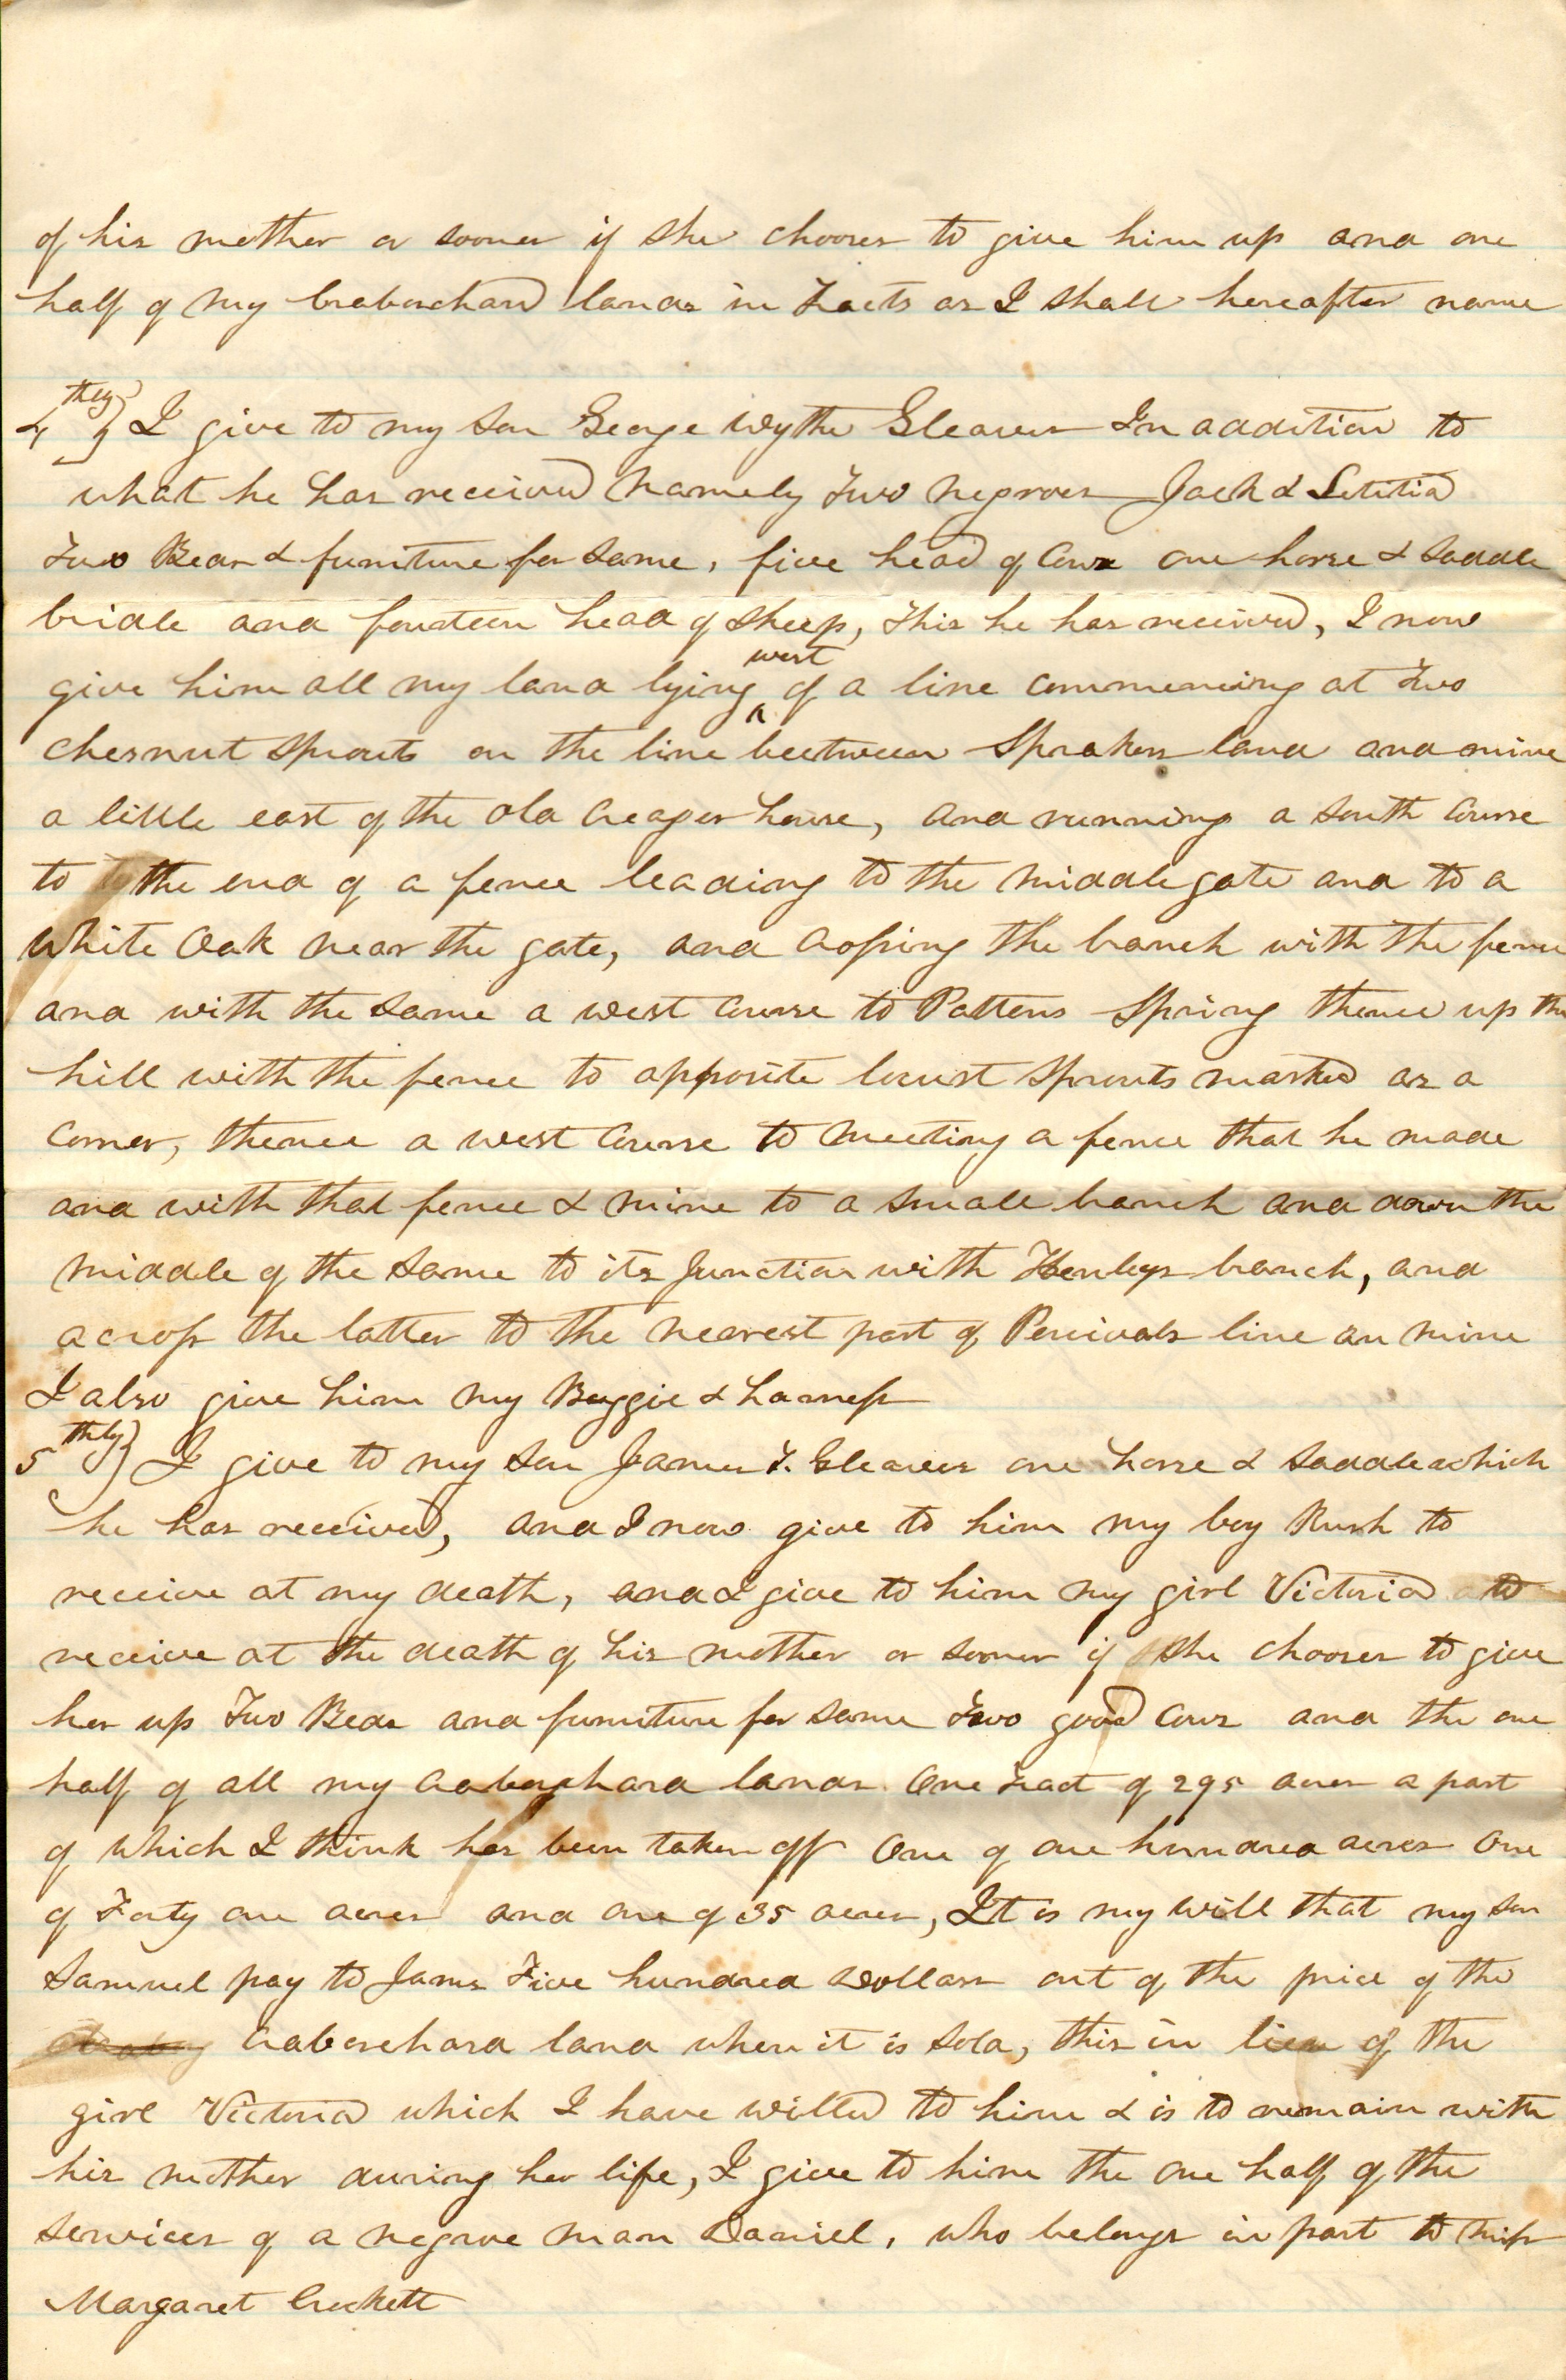 of his mother or sooner if she chooses to give him up and one
half of my craborchard lands in Tracts as I shall hereafter name
4thly} I give to my son George Wythe Gleaves In addition to
what he has received Namely Two Negroes Jack & Letitia
Two Beds & furniture for same, five head of Cows one horse & saddle
bridle and fourteen head of sheep, This he has received, I now
give him all my land lying west of a line commencing at Two
Chesnut Sprouts on the line beetween Sprakers land and mine
a little east of the old Creager house, and running a south course
to the end of a fence leading to the middle gate and to a
White Oak near the gate, and crossing the branch with the fence
and with the same a west course to Pattons Spring thence up the
hill with the fence to opposite locust sprouts marked as a
corner, thence a west course to meeting a fence that he made
and with that fence & mine to a small branch and down the
middle of the same to its Junction with Henleys branch, and
across the latter to the nearest part of Percivals line an mine
I also give him my Buggie & harness
5thly} I give to my son James T. Gleaves one horse & saddle which
he has received, and I now give to him my boy Rush to
receive at my death, and I give to him my girl Victoria to
receive at the death of his mother or sooner if she chooses to give
her up Two Beds and furniture for same Two good Cows and the one
half of all my Craborchard lands One Tract of 295 acres a part
of which I think has been taken off One of one hundred acres One
of Forty one acres and one of 35 acres, It is my will that my son
Samuel pay to James Five hundred Dollars out of the price of the
Craborchard land when it is sold, this in lieu of the
girl Victoria which I have willed to him & is to remain with
his mother during her life, I give to him the one half of the
services of a negroe man Daniel, who belongs in part to Miss
Margaret Crockett